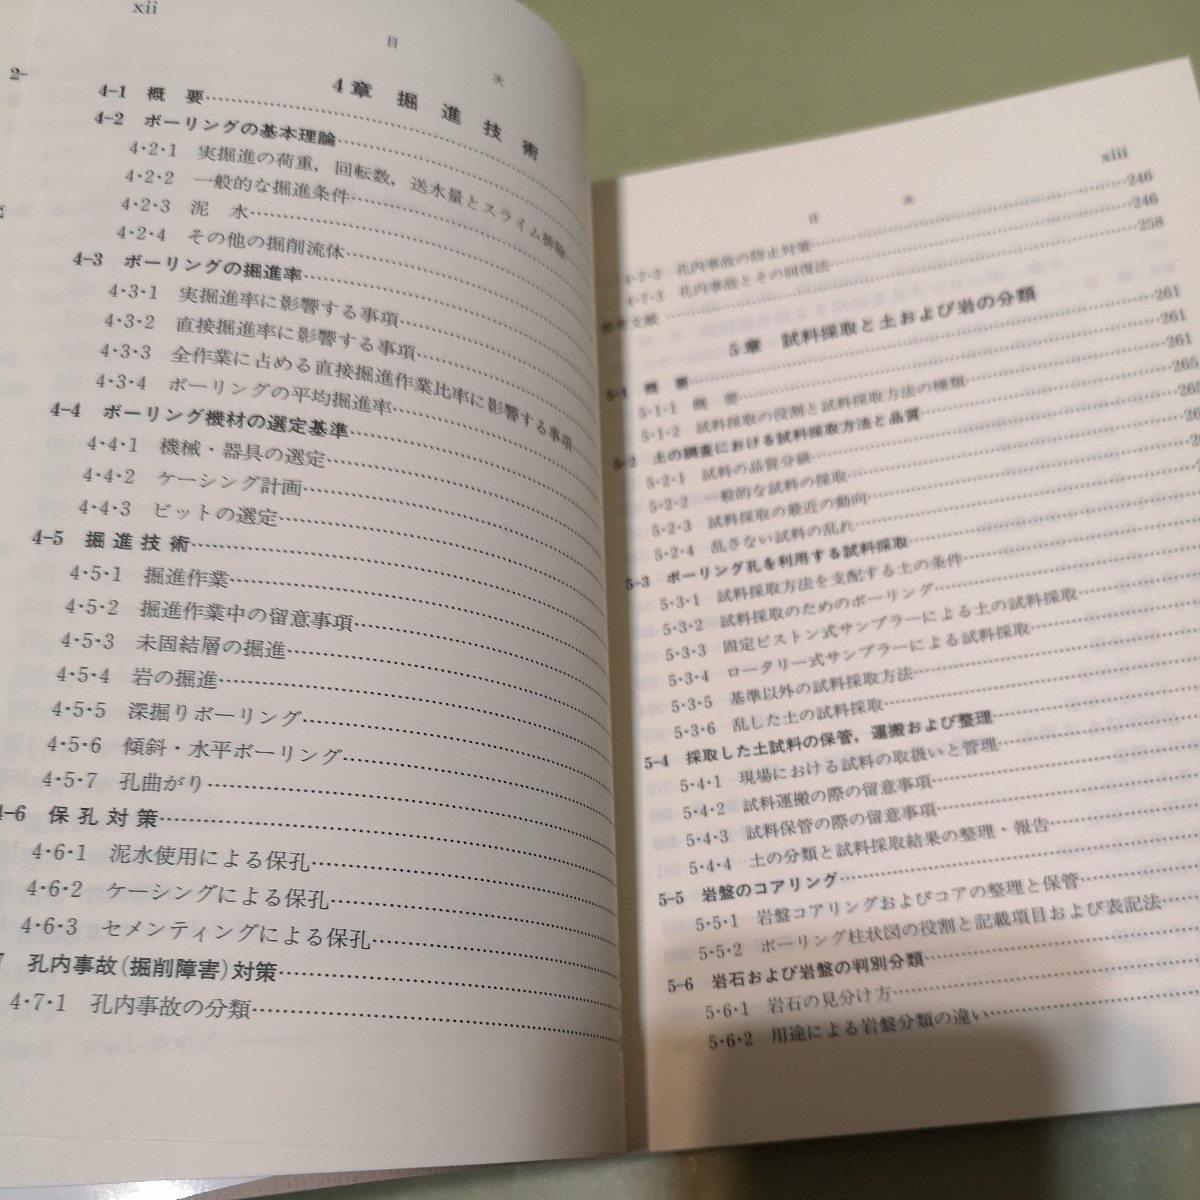 xii
目 次
4章 掘進技術
4-1 概要
4-2 ボーリングの基本理論
4・2・1 実掘進の荷重,回転数,送水量とスライム排除
4・2・2 一般的な掘進条件
4・2・3 泥水
4・2・4 その他の掘削流体
4-3 ボーリングの掘進率
4・3・1 実掘進率に影響する事項
4・3・2 直接掘進率に影響する事項
4・3・3 全作業に占める直接掘進作業比率に影響する事項
4・3・4 ボーリングの平均掘進率
4-4 ボーリング機材の選定基準
4・4・1 機械・器具の選定
4・4・2 ケーシング計画
4・4・3 ビットの選定
4-5 掘進技術
4・5・1 掘進作業
4・5・2 掘進作業中の留意事項
4・5・3 未固結層の掘進
4・5・4 岩の掘進
4・5・5 深掘りボーリング
4・5・6 傾斜・水平ボーリング
4・5・7 孔曲がり
4-6 保孔対策
4・6・1 泥水使用による保孔
4・6・2 ケーシングによる保孔
4・6・3 セメンティングによる保孔
7 孔内事故(掘削障害)対策
4・7・1 孔内事故の分類
xiii
目 次
4・7・2 孔内事故の防止対策 246
4・7・3 孔内事故とその回復法 246
参考文献 258
5章 試料採取と土および岩の分類
5-1 概要 261
5・1・1 概要 261
5・1・2 試料採取の役割と試料採取方法の種類 261
5-2 土の調査における試料採取方法と品質 265
5・2・1 試料の品質分級
5・2・2 一般的な試料の採取
5・2・3 試料採取の最近の動向
5・2・4 乱さない試料の乱れ
5-3 ボーリング孔を利用する試料採取
5・3・1 試料採取方法を支配する土の条件
5・3・2 試料採取のためのボーリング
5・3・3 固定ピストン式サンプラーによる土の試料採取
5・3・4 ロータリー式サンプラーによる試料採取
5・3・5 基準以外の試料採取方法
5・3・6 乱した土の試料採取
5-4 採取した土試料の保管,運搬および整理
5・4・1 現場における試料の取扱いと管理
5・4・2 試料運搬の際の留意事項
5・4・3 試料保管の際の留意事項
5・4・4 土の分類と試料採取結果の整理・報告
5-5 岩盤のコアリング
5・5・1 岩盤コアリングおよびコアの整理と保管
5・5・2 ボーリング柱状図の役割と記載項目および表記法
5-6 岩石および岩盤の判別分類
5・6・1 岩石の見分け方
5・6・2 用途による岩盤分類の違い